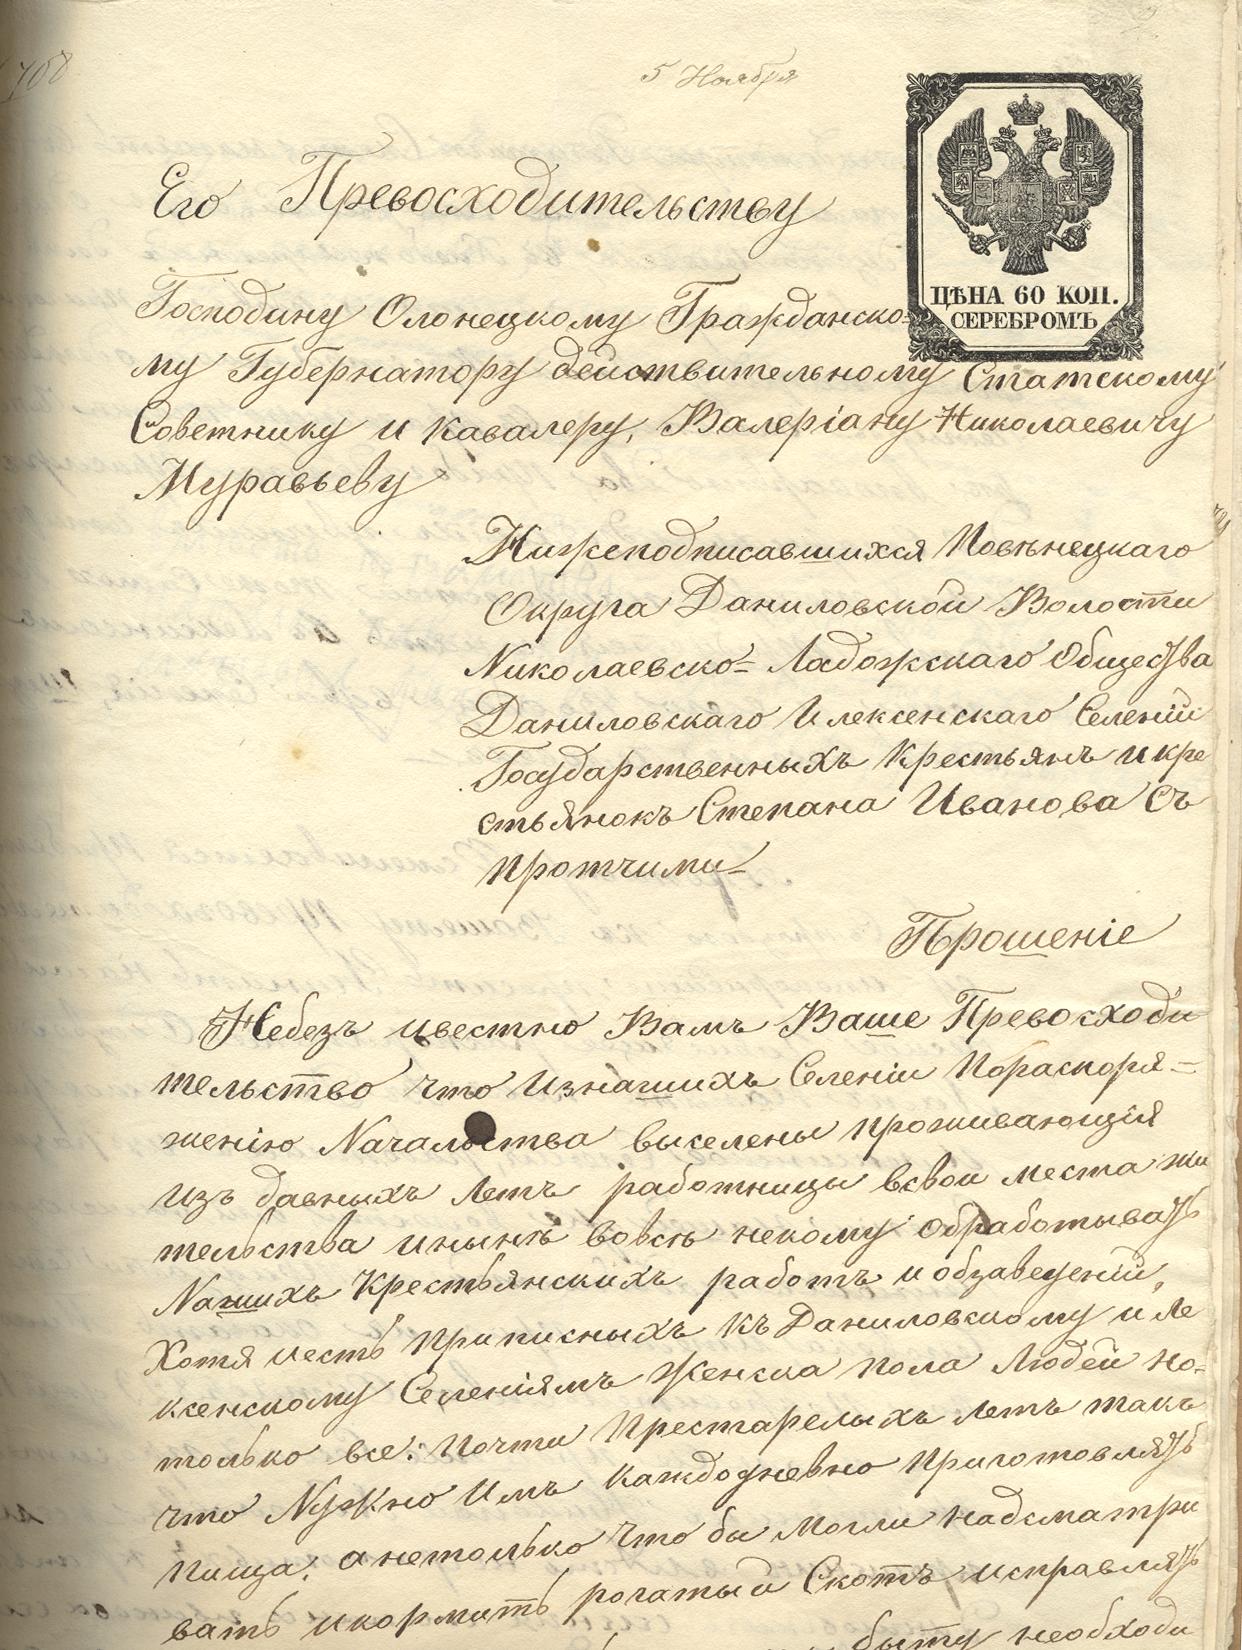 708
5 Ноября
ЦѢНА 60 КОП.
СЕРЕБРОМЪ
Его Превосходительству
Господину Олонецкому Гражданско=
му Губернатору действительному Статскому
Советнику и Кавалеру, Валеріану Николаевичу
Муравьеву
Нижеподписавшихся Повѣнецкаго
Округа Даниловской Волости
Николаевско= Ладожскаго Общества
Даниловскаго Илексенскаго Селеній
Государственныхъ Крестьянъ и кре
стьянокъ Степана Иванова Съ
протчими
Прошеніе
Небезъ ивестно Вамъ Ваше Превосходи
тельство что Изнашихъ Селеніи Пораспоря=
женію Начальства выселены проживающія
изъ давныхъ летъ работницы всвои места жи
тельства инынѣ вовсѣ некому обработывать
Нашихъ Крестьянскихъ работъ и обзаведеній,
Хотя иесть приписныхъ къ Даниловскому и Ле
ксенскому Селеніямъ Женска пола Людей но=
только все: почти Престарелыхъ летъ такъ
что Нужно Имъ каждодневно приготовлять
пища: анетолько что бы могли надсматри
вать икормить рогатый Скотъ исправлять
быту необходи